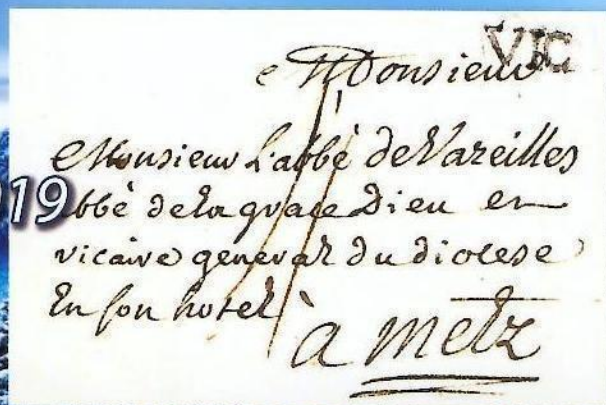 VIC
Monsieur
Monsieur L'abbé de Vareilles
19
abbé de la grace Dieu et
vicaire general du diocese
En son hotel
à Metz